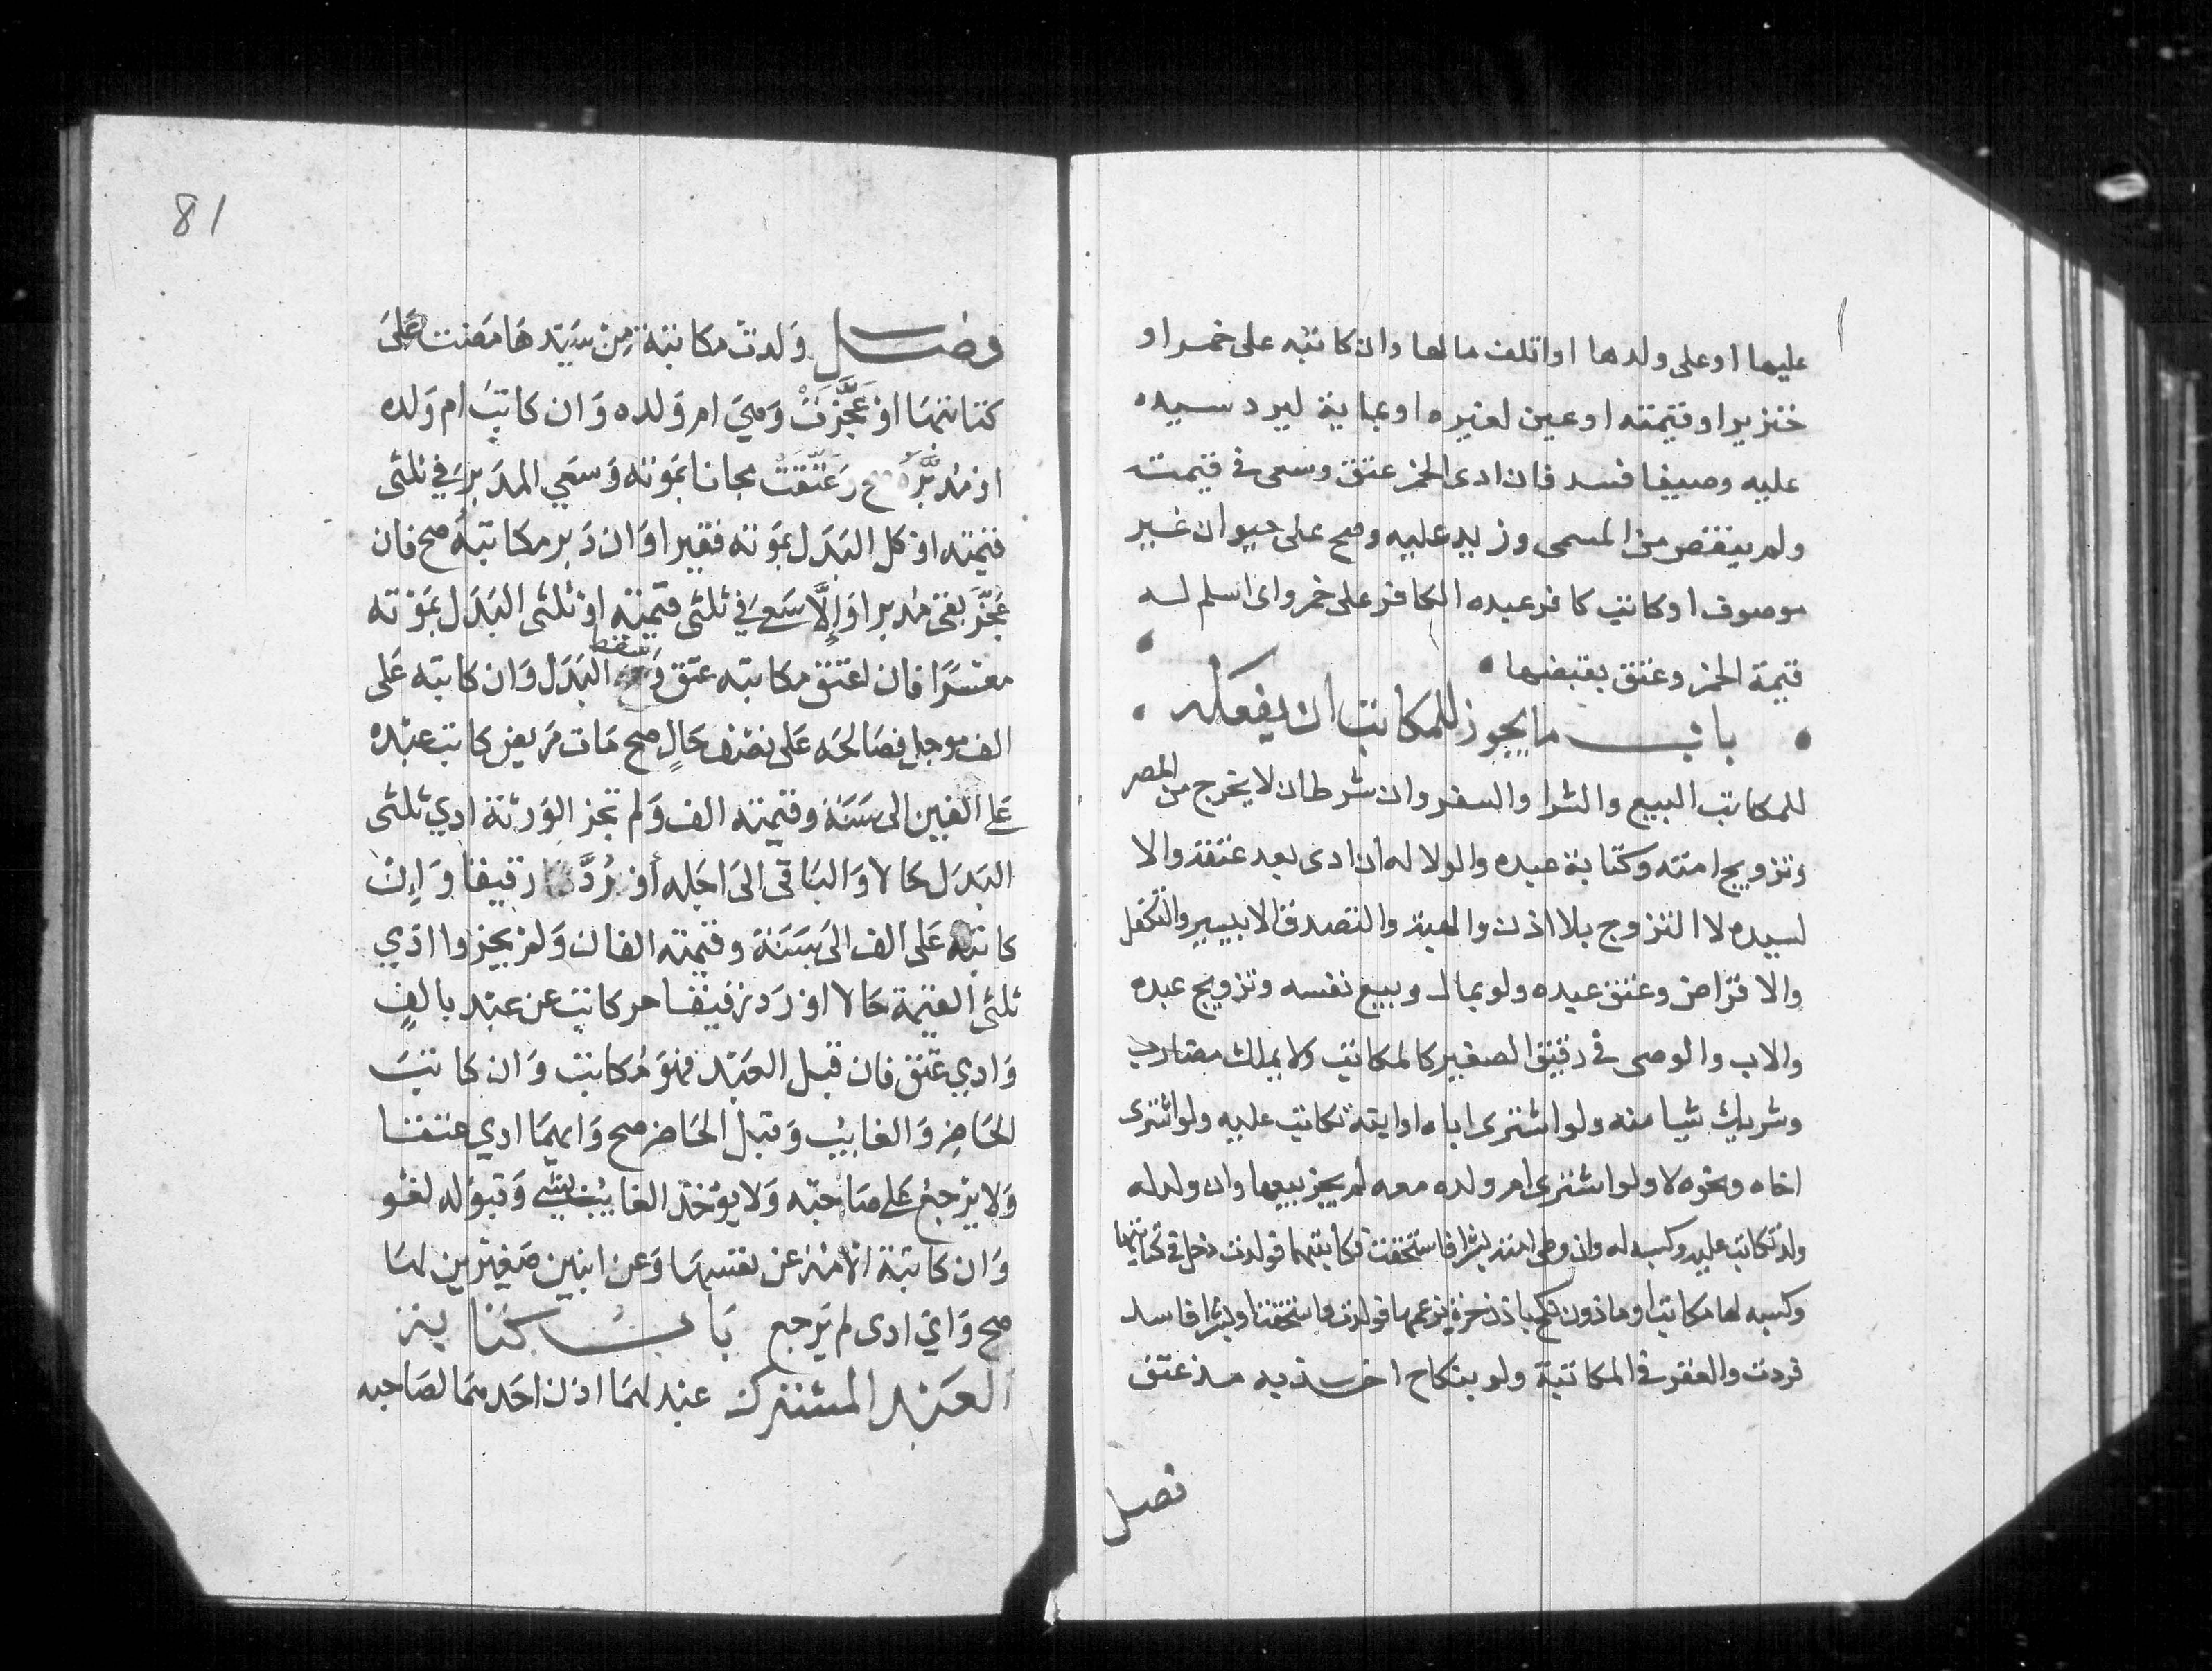 عليها او على ولدها او اتلف مالها وان كاتبه على خمر او
خنزير او قيمته او عين لغيره او بماية ليرد سيده
عليه وصيفا فسد فان ادى الخمر عتق وسعى فى قيمته
ولم ينقص من المسمى وزيد عليه وصح على حيوان غير
موصوف او كاتب كافر عبده الكافر على خمر واى اسلم له
قيمة الخمر وعتق بقبضها
باب ما يجوز للمكاتب ان يفعله
للمكاتب البيع والشرا والسفر وان شرط ان لا يخرج من المصر
وتزويج امته وكتابة عبده والولا له ان ادى بعد عتقه والا
لسيده لا التزوج بلا اذن والهبة والتصدق الا بيسير والتكفل
والاقراض وعتق عبده ولو بمال وبيع نفسه وتزويج عبده
والاب والوصى فى رقيق الصغير كالمكاتب ولا يملك مضارب
وشريك شيا منه ولو اشترى اباه او ابنه تكاتب عليه ولو اشترى
اخاه ونحوه لا ولو اشترى ام ولده معه لم يجز بيعها وان ولد له
ولد تكاتب عليه وكسبه له وان وطى امته بشرا فاستحقت فكاتبتهما فولدت دخل فى كتابتها
وكسبه لها مكاتب او ماذون نكح باذن حرة بزعمها فولدت فاستحقت او بشرا فاسد
فردت والعقر فى المكاتبة ولو بنكاح اخذ به مذ عتق
فصل
81
فصل وَلدت مكاتبة مِن سَيّدهَا مَضت عَلىَ
كتابتهَا اوْ عَجَّزَتْ وَهيَ ام وَلده وَان كاتبَ ام وَلده
اوْ مُدبَّرَه صح وَعَتَقَتْ مجانا بمَوته وَسَعي المدَبر في ثلثى
قيمته اوْ كل البَدَل بمَوته فقيرا وَان دَبر مكاتبهُ صح فان
عَجَّزَ بقىَ مُدبرا وَإلَّا سَعىَ في ثلثى قيمته اوْ ثلثى البَدَل بمَوْته
معْسرًا فان اعتق مكاتبه عتق وَسقط البَدَل وَان كاتبه عَلى
الف موجل فصَالحه عَلى نصْف حَالٍ صح مَات مَريض كاتب عبْده
عَلى الفين الى سَنَة وقيمته الف وَلم تجز الوَرثة ادي ثلثى
البَدَل حَالا وَالبَاقى الىَ اجَله أوْ رُدَّ رقيقا وَإنْ
كاتبه عَلى الف الىَ سَنَة وقيمته الفان وَلم يجيزوا ادّي
ثلثى القيمة حَالا اوْ رَد رَقيقا حر كاتب عن عبْد بالفٍ
وَادي عَتق فان قبل العَبْد فهوَ مُكاتب وَان كاتبَ
الحَاضر وَالغايب وَقبل الحَاضر صح وَايهمَا ادي عتقا
وَلا يرْجعُ عَلى صَاحبه وَلا يوخذ الغايبُ بشي وَقبوْله لغو
وَان كاتبَة الامَة عن نفسهَا وَعن ابنين صَغيْرين لهَا
صح وَاي ادى لم يَرجع بَاب كتابة
العَبْد المشترك عبْد لهمَا اذن احَدهمَا لصَاحبه